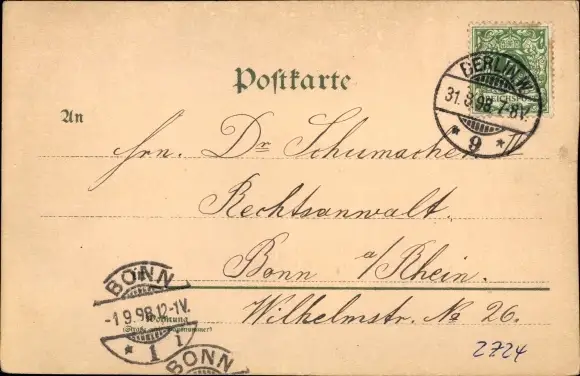 Postkarte
BERLIN.W.
31.8.98.7-8V.
* 9 *
REICHSPOST
An
Hrn. Dr Schumacher
Rechtsanwalt.
Bonn a/Rhein.
Wilhelmstr. No 26.
BONN
-1.9.98.12-1V.
* 1 i
Wohnung
(Straße und Hausnummer)
BONN
2724